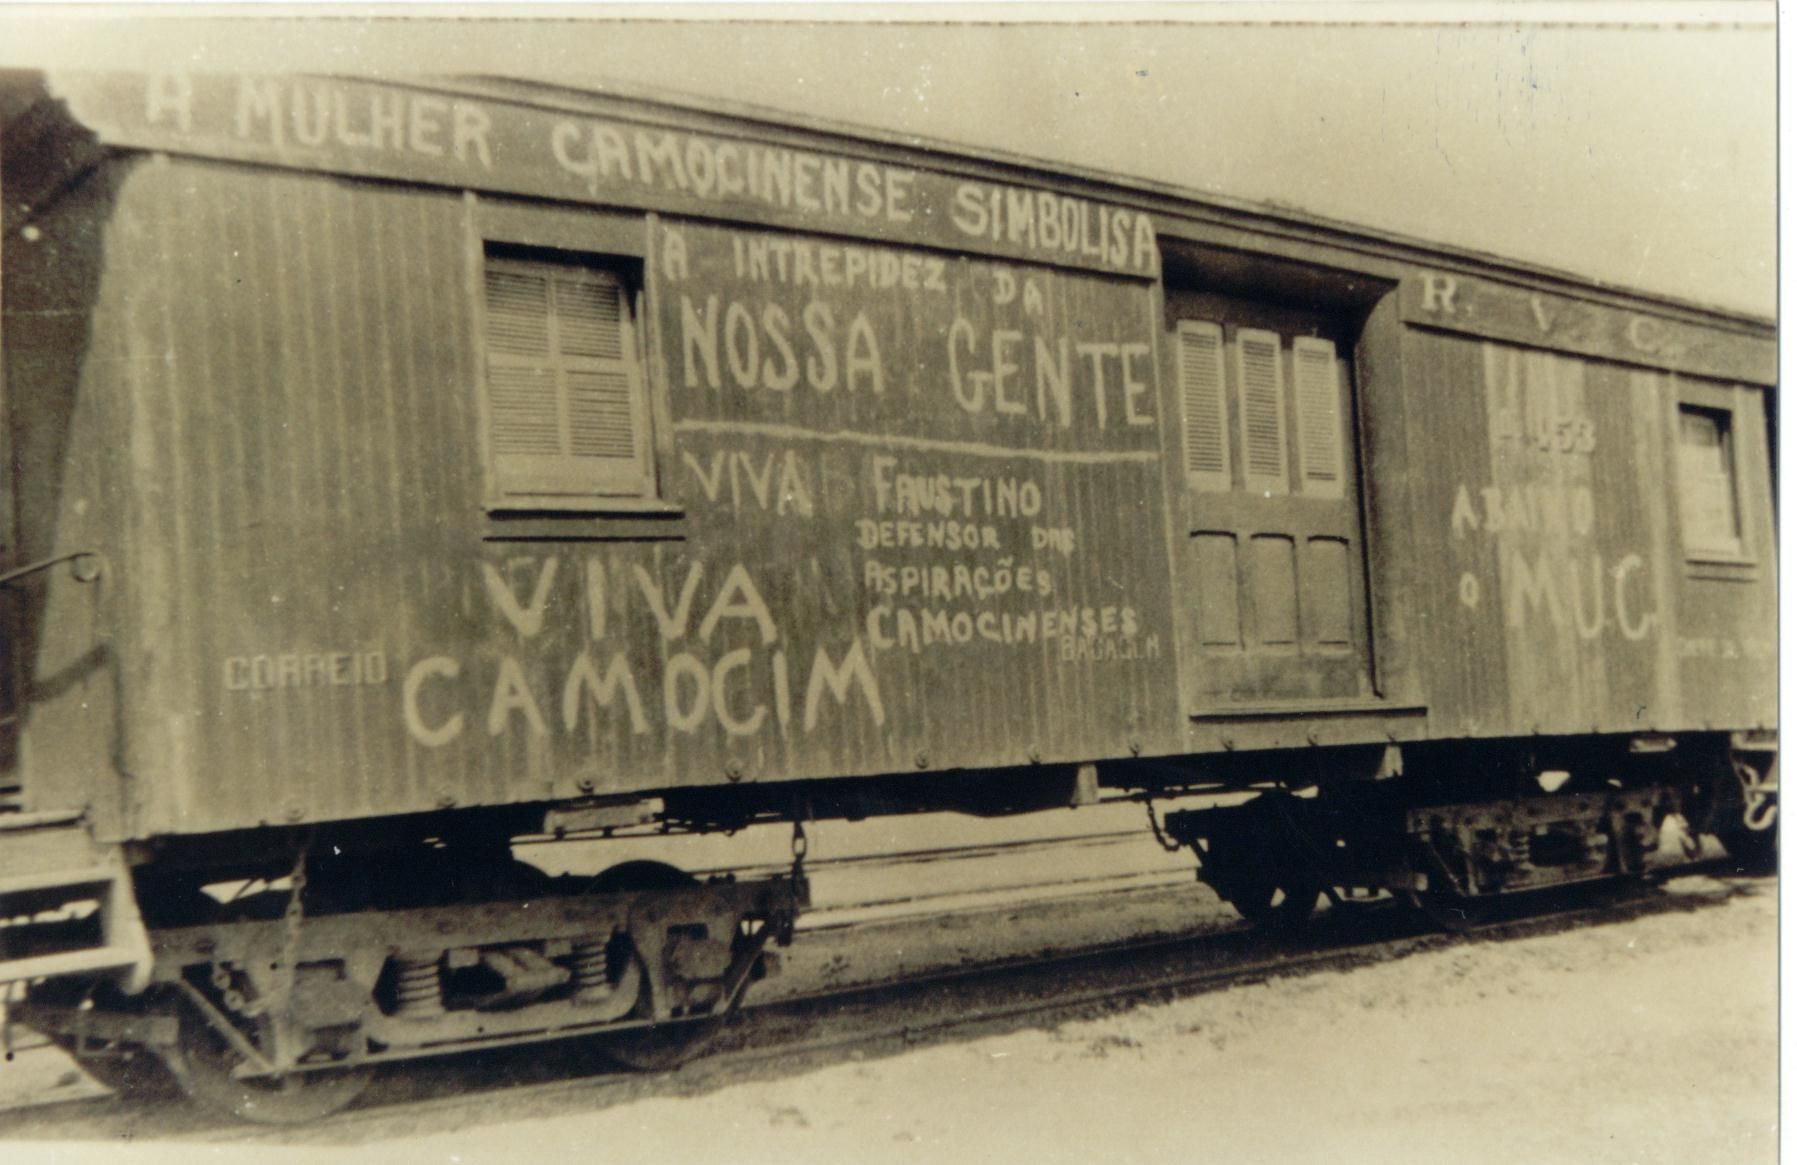 A MULHER CAMOCINENSE SIMBOLISA
A INTREPIDEZ DA
NOSSA GENTE
VIVA FAUSTINO
DEFENSOR DAS
ASPIRAÇÕES
CAMOCINENSES
VIVA
CAMOCIM
CORREIO
BAGAGEM
R. V. C.
ABAIXO
O MUC